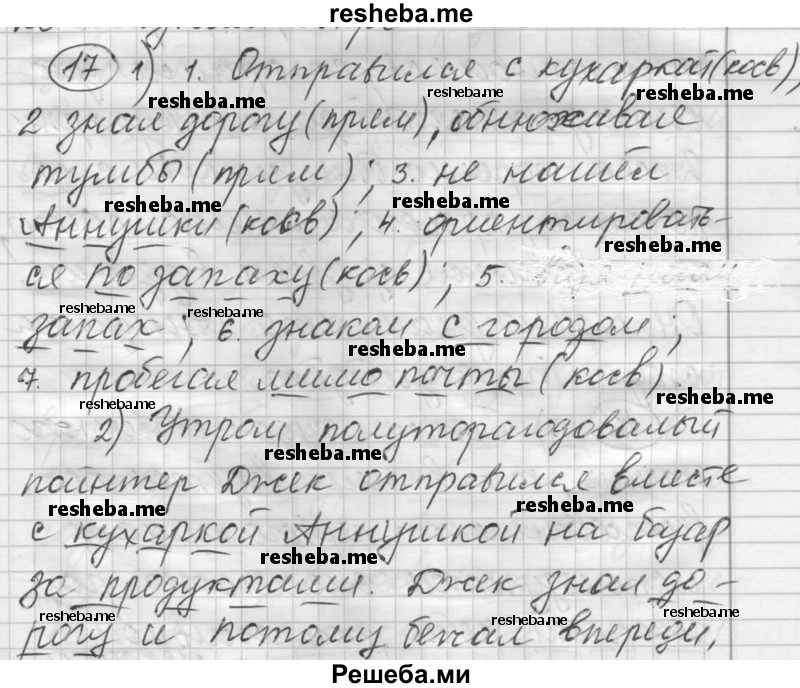 resheba.me
17 1) 1. Отправился с кухаркой (косв),
resheba.me resheba.me resheba.me
2 знал дорогу (прям), обнюхивая
тумбы (прям); 3. не нашёл
resheba.me resheba.me
Аннушки (косв); 4. ориентировать-
resheba.me
ся по запаху (косв); 5.
resheba.me resheba.me
запах; 6. знаком с городом;
resheba.me
7. пробегая мимо почты (косв)
resheba.me resheba.me
2) Утром полуторагодовалый
resheba.me
пойнтер Джек отправился вместе
resheba.me resheba.me
с кухаркой Аннушкой на базар
resheba.me
за продуктами. Джек знал до-
resheba.me resheba.me resheba.me
рогу и потому бежал впереди,
Решеба.ми